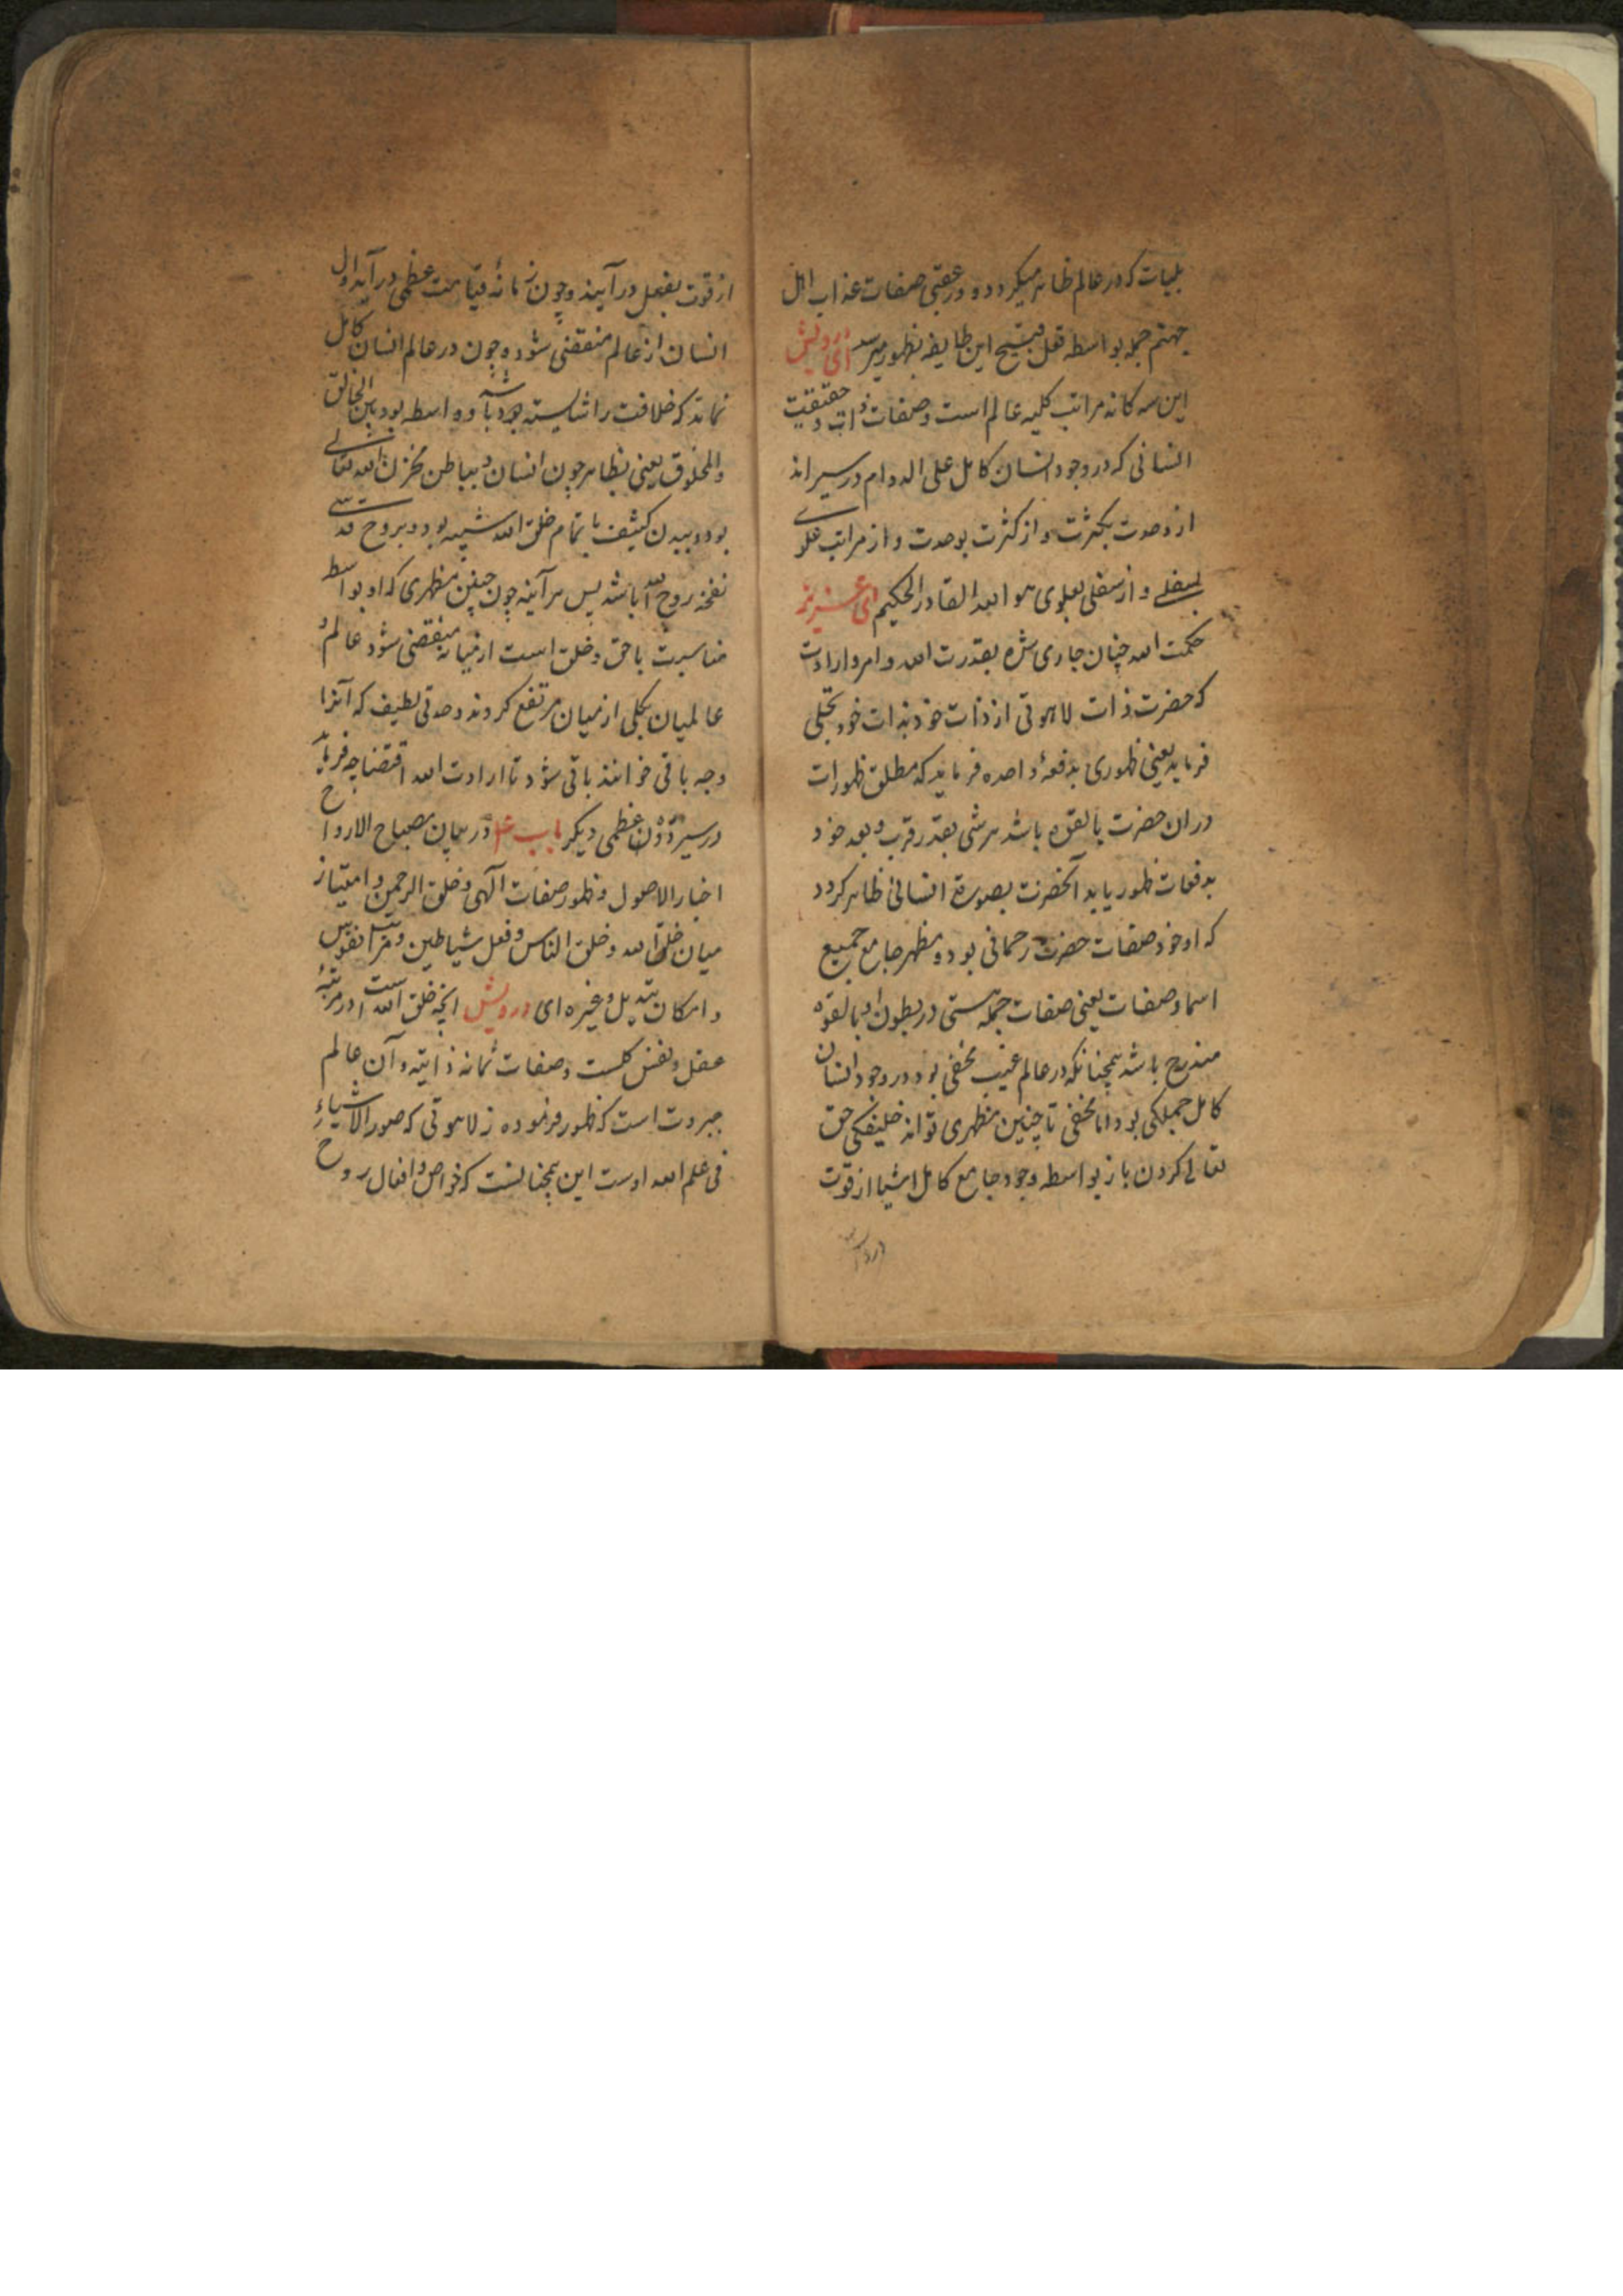 بلیات که در عالم ظاهر میکردد و در عقبی صفات عذاب اهل
جهنم جمله بواسطه فعل قبیح این طایفه بظهور میرسد ای درویش
این سه کانه مراتب کلیه عالم است و صفات ذات و حقیقت
انسانی که در وجود انسان کامل علی الدوام در سیراند
از وحدت بکثرت و از کثرت بوحدت و از مراتب علوی
بسفلے و از سفلی بعلوی هو الله القادر الحکیم ای عزیز
حکمت الله چنان جاری شده بقدرت الله و امر و ارادت
که حضرت ذات لاهوتی از ذات خود بذات خود تجلی
فرماید یعنی ظهوری بدفعهٔ واحده فرماید که مطلق ظهورات
دران حضرت بالقوه باشد هر شی بقدر قرب و بعد خود
بدفعات ظهور یابد آنحضرت بصورة انسانی ظاهر کردد
که او خود صفات حضرت رحمانی بود و مظهر جامع جمیع
اسما و صفات یعنی صفات جمله هستی در بطون او بالقوه
مندرج باشد همچنانکه در عالم غیب مخفی بود در وجود انسان
کامل جملکی بود اما مخفی تا چنین مظهری تواند خلیفکی حق
تعالی کردن باز بواسطه وجود جامع کامل اشیا از قوت
از قوت بفعل در آیند و چون زمانهٔ قیامت عظمی در آید اول
انسان از عالم منقضی شود و چون در عالم انسان کامل
نماند که خلافت را شایسته بود باشد و واسطه بود بین الخالق
والمخلوق یعنی بظاهر چون انسان و بباطن مخزن الله تعالی
بود و ببدن کثیف با تمام خلق الله شبیه بود و بروح قدسی
نفخه روح الله باشد پس هر آینه چون چنین مظهری که او بواسطه
مناسبت با حق و خلق است از میانه منقضی شود عالم و
عالمیان بکلی از میان مرتفع کردند وحدتی لطیف که آنرا
وجه باقی خوانند باقی شود تا ارادت الله اقتضا چه فرماید
در سیر دوران عظمی دیکر باب در بیان مصباح الارواح
اخبار الاصول و ظهور صفات آلهی و خلق الرحمن و امتیاز
میان خلق الله و خلق الناس و فعل شیاطین و مراتب نفوس
و امکان تبدیل و غیره ای درویش انچه خلق الله است در مرتبهٔ
عقل و نفس کلست و صفات ثمانه ذاتیه و آن عالم
جبروت است که ظهور فرموده ز لاهوتی که صور الاشیاءِ
فی علم الله اوست این همچنانست که خواص و افعال روح